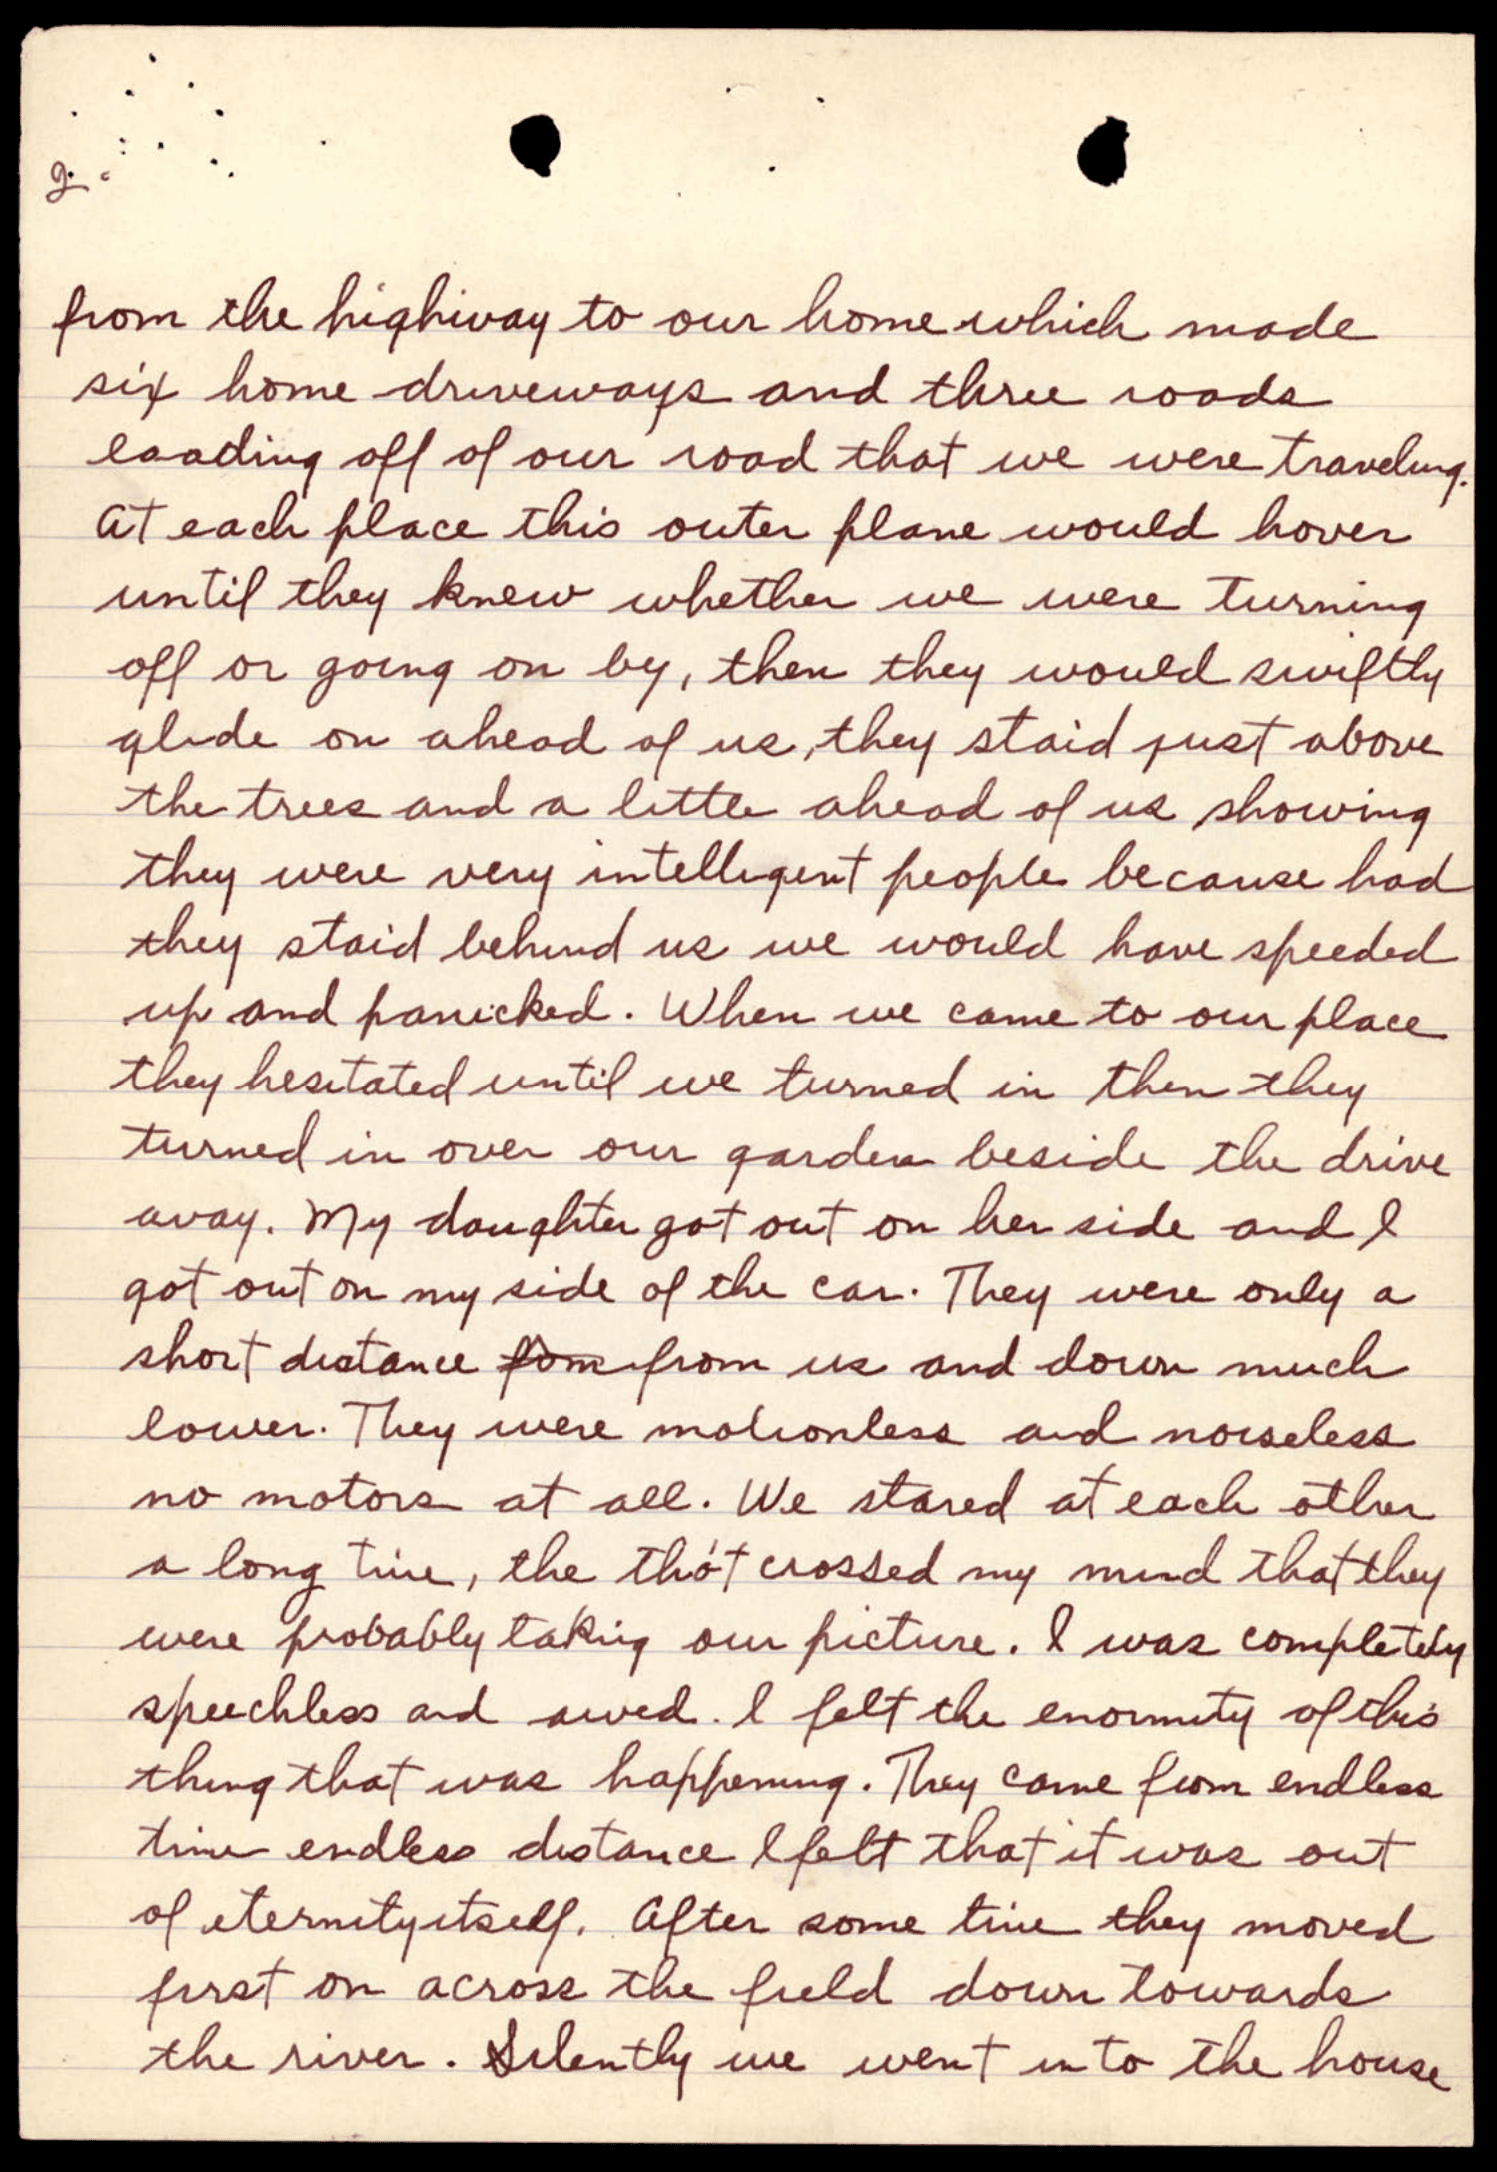 2.
from the highway to our home which made
six home driveways and three roads
leading off of our road that we were traveling.
At each place this outer plane would hover
until they knew whether we were turning
off or going on by, then they would swiftly
glide on ahead of us, they staid just above
the trees and a little ahead of us showing
they were very intelligent people because had
they staid behind us we would have speeded
up and panicked. When we came to our place
they hesitated until we turned in then they
turned in over our garden beside the drive
away. My daughter got out on her side and I
got out on my side of the car. They were only a
short distance fom from us and down much
lower. They were motionless and noiseless
no motors at all. We stared at each other
a long time, the tho't crossed my mind that they
were probably taking our picture. I was completely
speechless and awed. I felt the enormity of this
thing that was happening. They came from endless
time endless distance I felt that it was out
of eternity itself. After some time they moved
first on across the field down towards
the river. Silently we went into the house